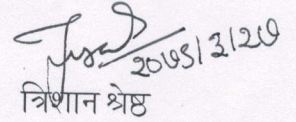 २०७९/३/२७
त्रिशान श्रेष्ठ